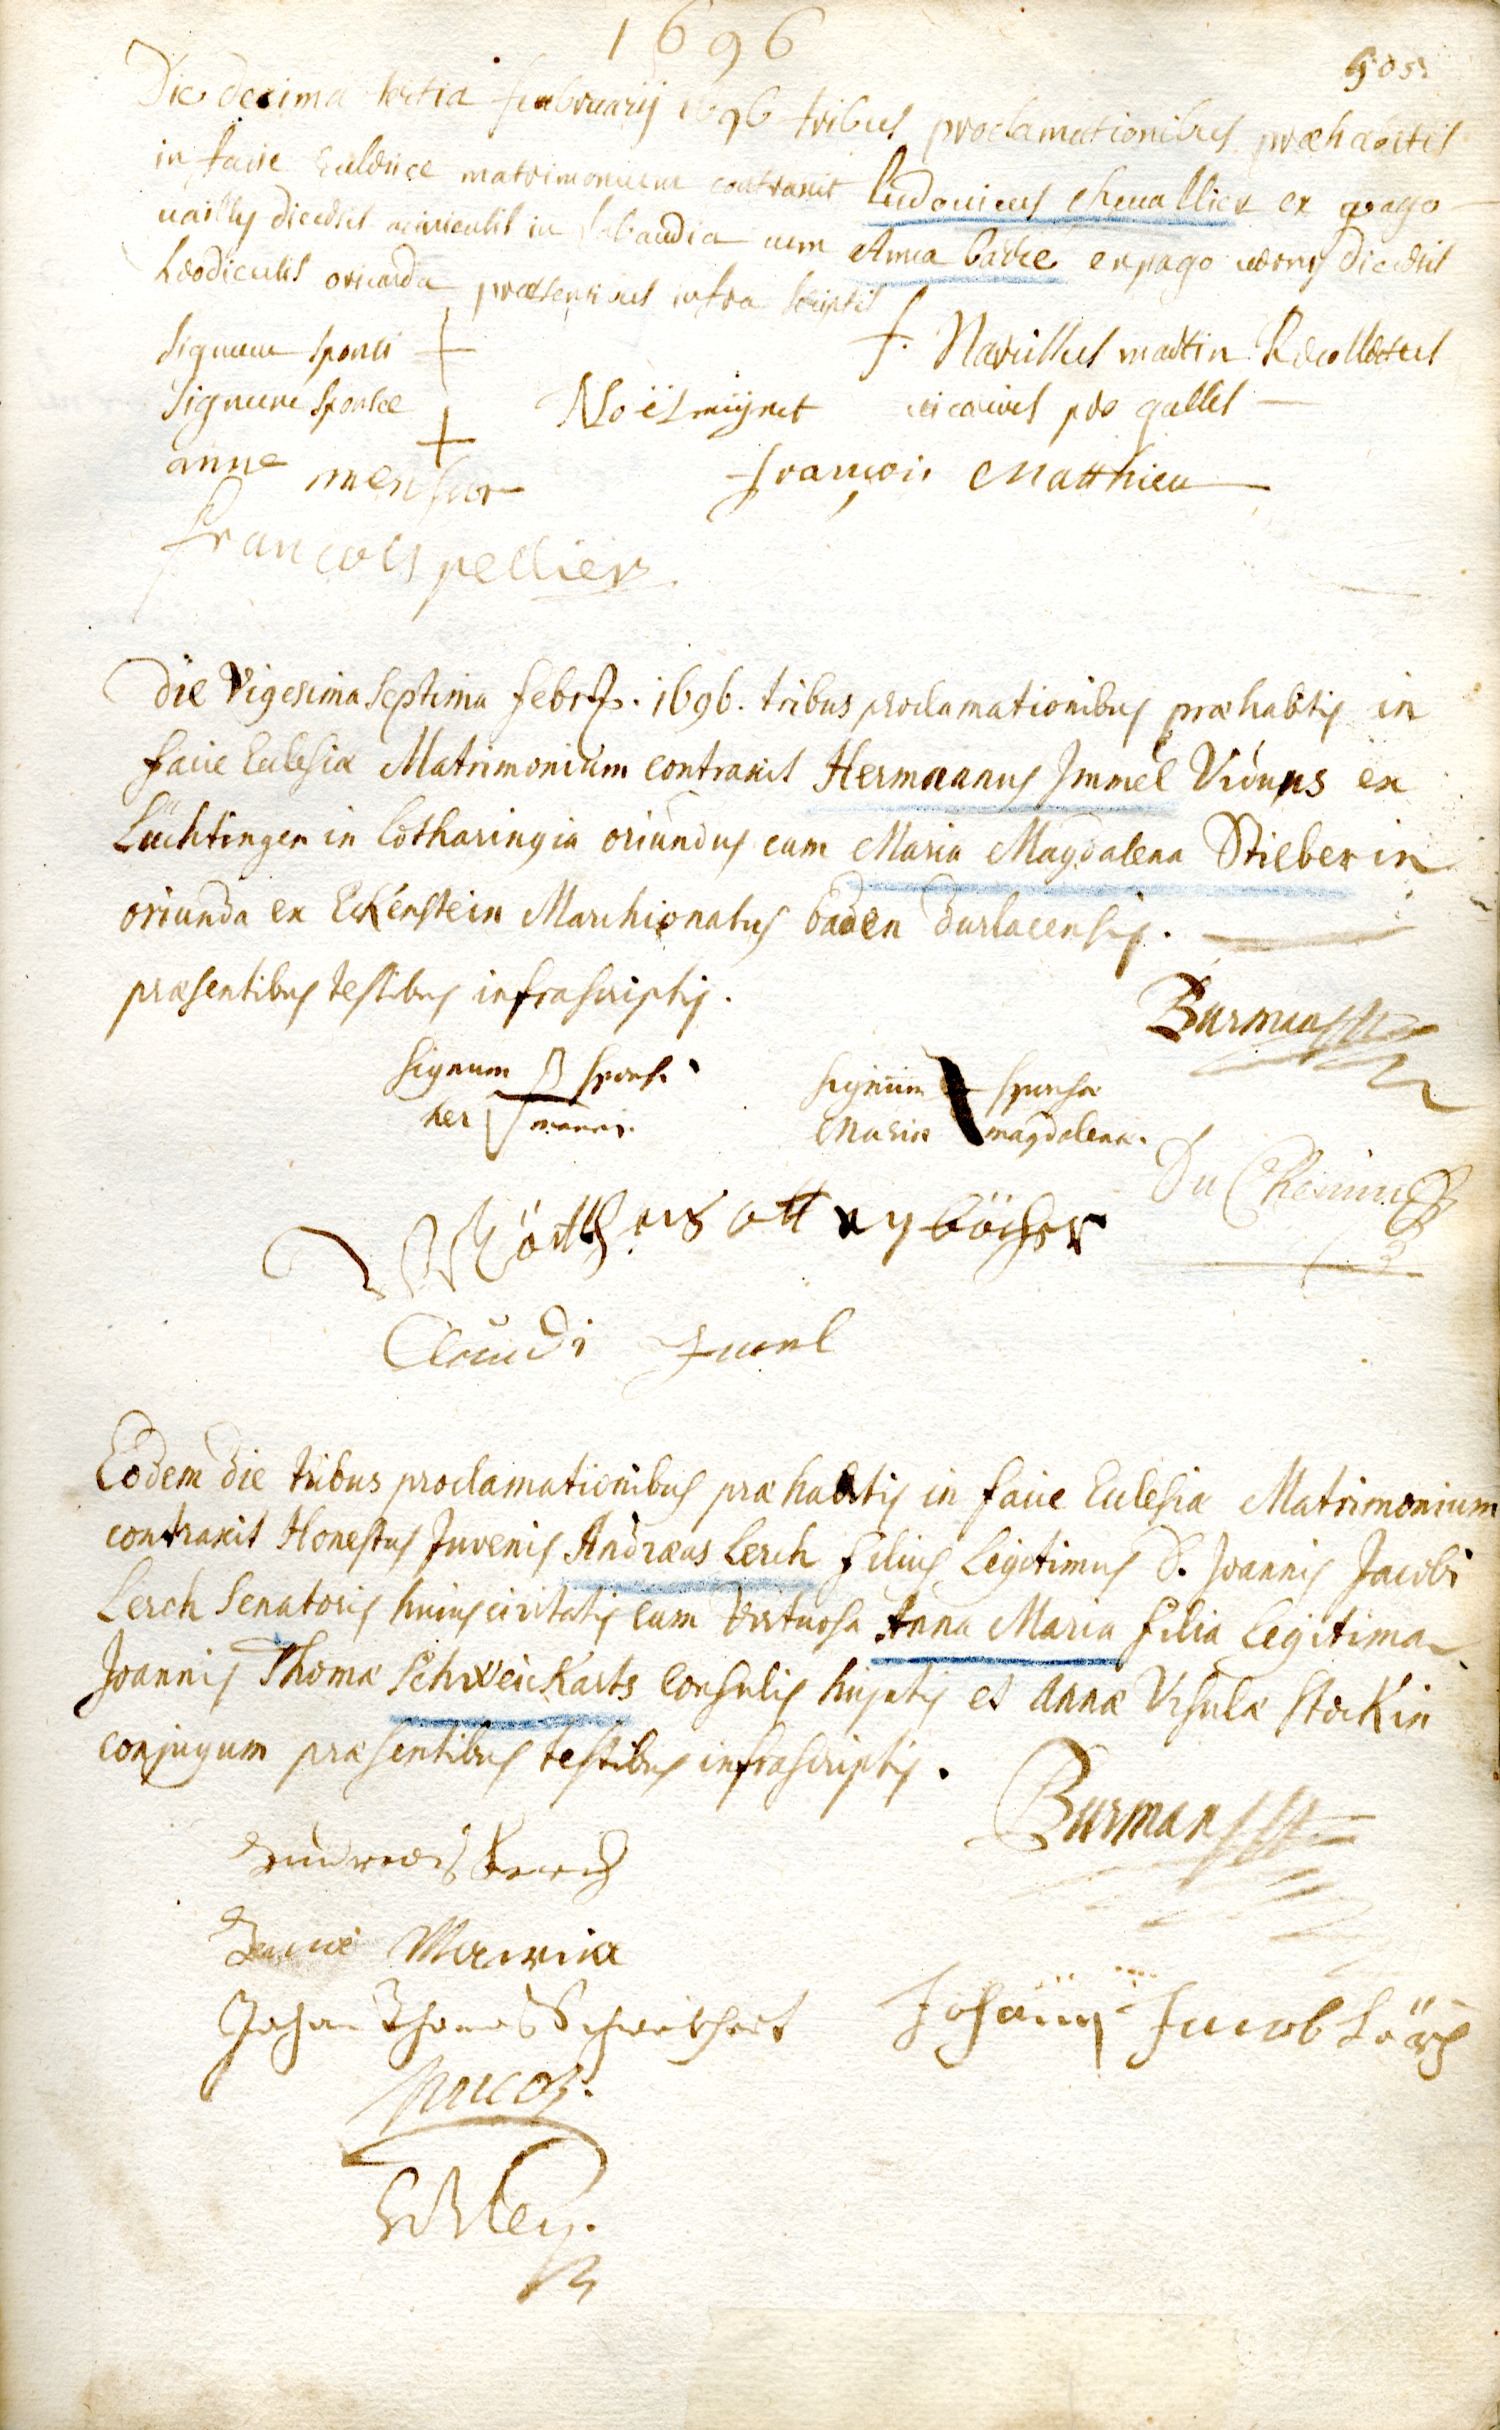 1696
505
Die decima tertia feabruarij 1696 tribus proclamationibus præhabitis
in facie Ecclesiæ matrimonium contraxit Ludovicus chevallier ex pago
diœcesis in Sabaudia cum Anna barbe ex pago diœcesis
Leodiensis oriunda præsentibus infra scriptis
signum sponsi + f. martin Recollectus
signum sponsæ + Noël vicarius pro gallis
anne françois Matthieu
francois pellier
Die Vigesima Septima febr. 1696. tribus proclamationibus præhabitis in
facie Ecclesiæ Matrimonium contraxit Hermannus Immel Viduus ex
Lüchtingen in Lotharingia oriundus cum Maria Magdalena Stieberin
oriunda ex Eckenstein Marchionatus baden durlacensis.
præsentibus testibus infrascriptis.
Burman
signum sponsi signum sponsæ
her manni. Maria magdalena.
Du Chemin
Claudi
Eodem die tribus proclamationibus præhabitis in facie Ecclesiæ Matrimonium
contraxit Honestus Juvenis Andræas Lerch filius Legitimus D. Joannis Jacobi
Lerch Senatoris huius civitatis cum Virtuosa Anna Maria filia Legitima
Joannis Thomæ Schweickarts Consulis hujatis et Annæ Ursulæ Stockin
conjugum præsentibus testibus infrascriptis.
Burman
Andreas Lerch
Anna Maria
Johan Thomas Schweickhart Johann Jacob Lörch